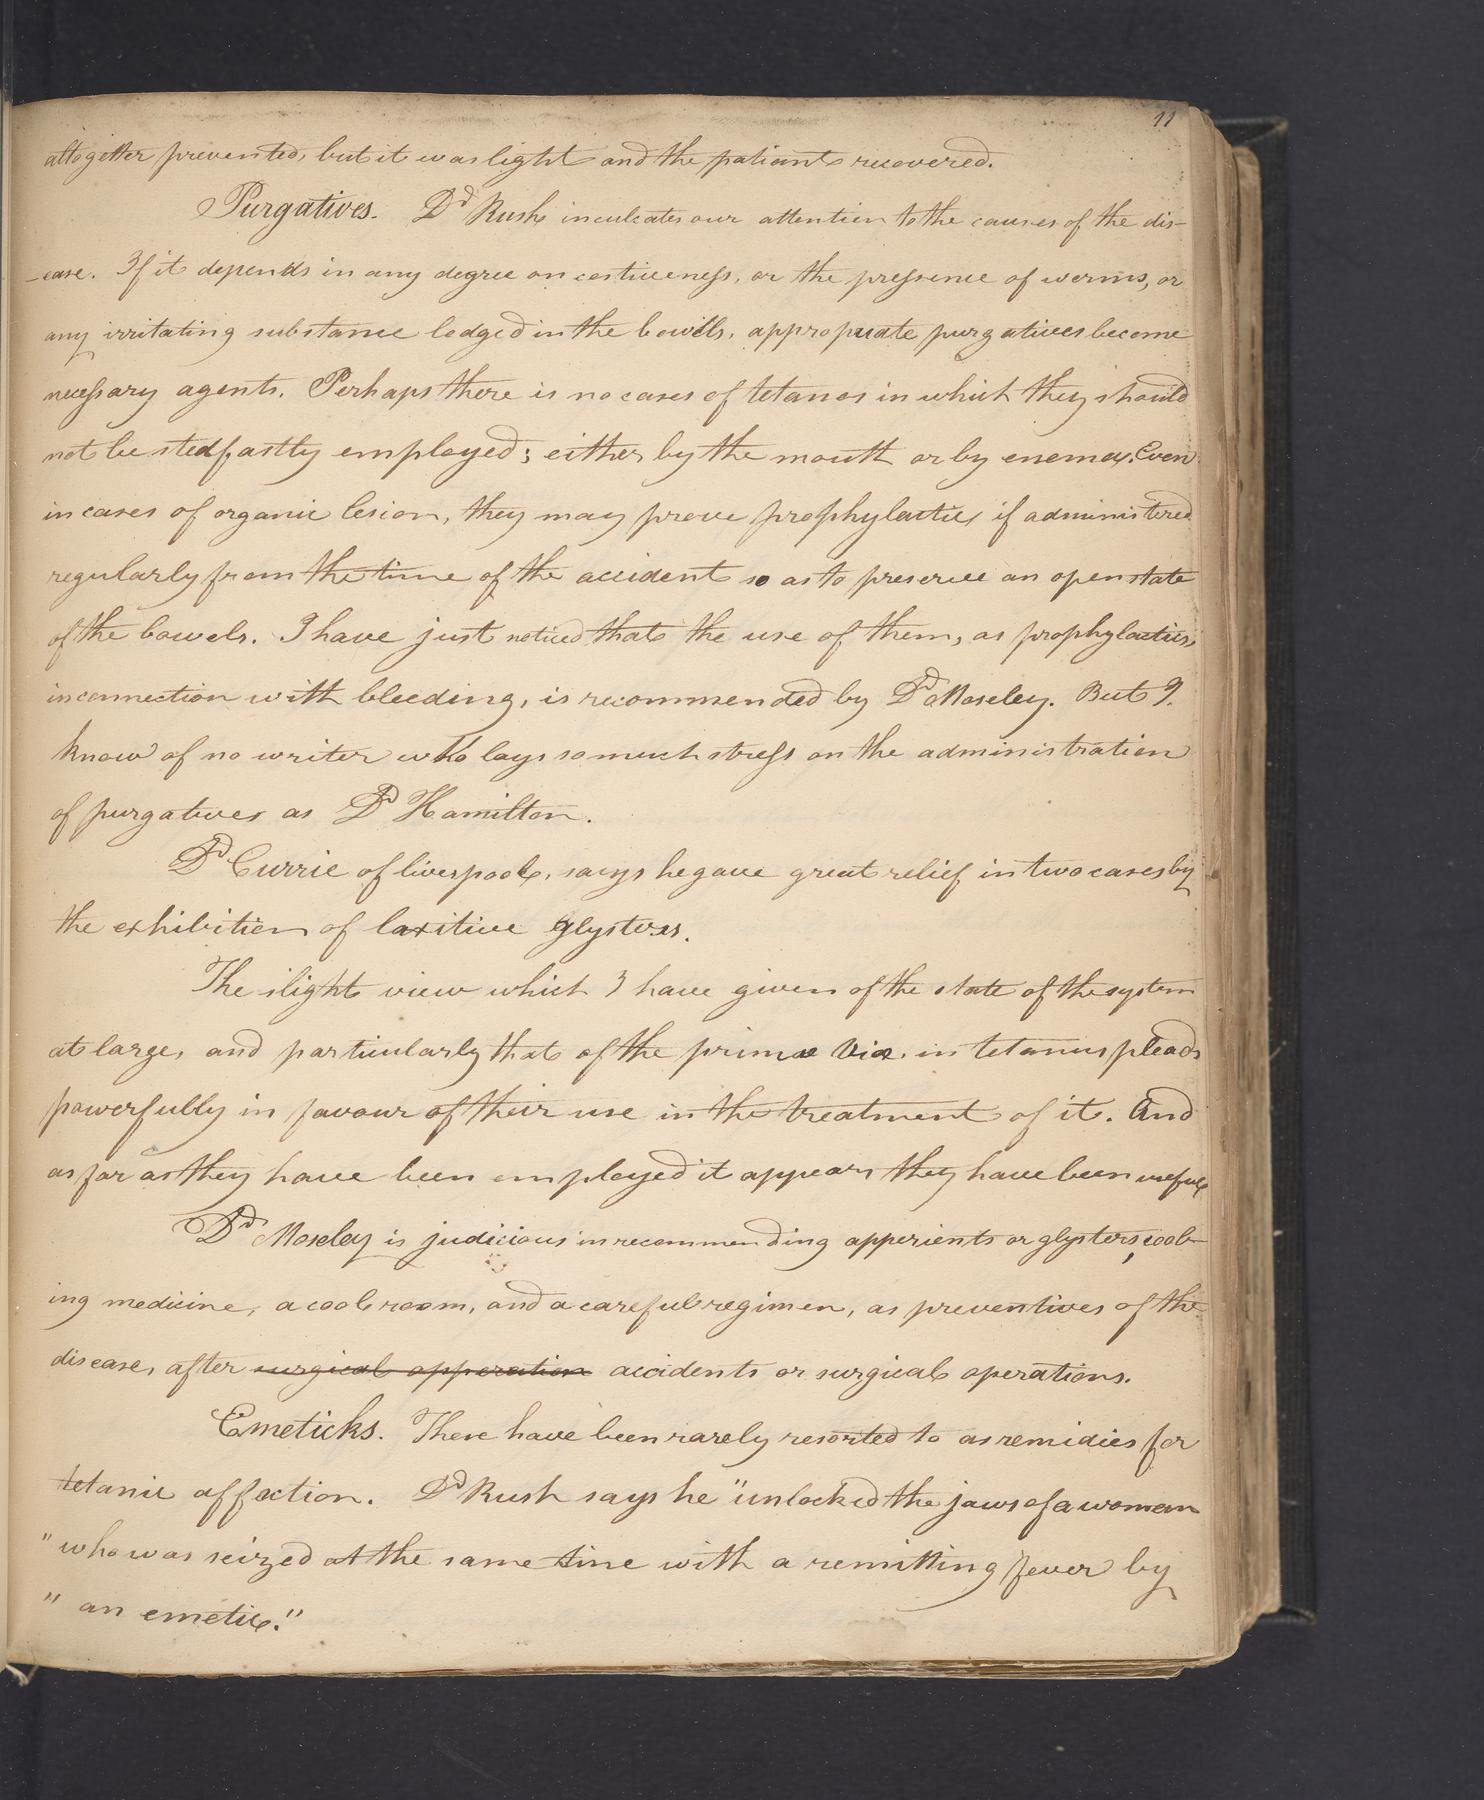 11
altogether prevented, but it was light and the patiant recovered.
Purgatives. Dr Rush inculcates our attention to the causes of the dis-
-ease. If it depends in any degree on costiveness, or the pressence of worms, or
any irritating substance lodged in the bowills, appropriate purgatives become
necessary agents. Perhaps there is no cases of tetanos in which they should
not be stedfastly employed; either by the mouth or by enema. Even
in cases of organic lesion, they may prove prophylactics if administered
regularly from the time of the accident so as to preserve an open state
of the bowels. I have just noticed that the use of them, as prophylactics,
in connection with bleeding, is recommended by Dr Moseley. But I
know of no writer who lays so much stress on the administration
of purgatives as Dr Hamilton.
Dr Currie of liverpool, says he gave great relief in two cases by
the exhibition of laxitive glysters.
The slight view which I have given of the state of the system
at large, and particularly that of the primæ viæ in tetanus pleads
powerfully in favour of their use in the treatment of it. And
as far as they have been employed it appears they have been useful
Dr Moseley is judicious in recommending apperients or glysters, cool-
ing medicine, a cool room, and a careful regimen, as preventives of the
disease, after surgical opperation accidents or surgical operations.
Emeticks. There have been rarely resorted to as remidies for
tetanic affection. Dr Rush says he "unlocked the jaws of a woman
"who was seized at the same time with a remitting fever by
" an emetic."